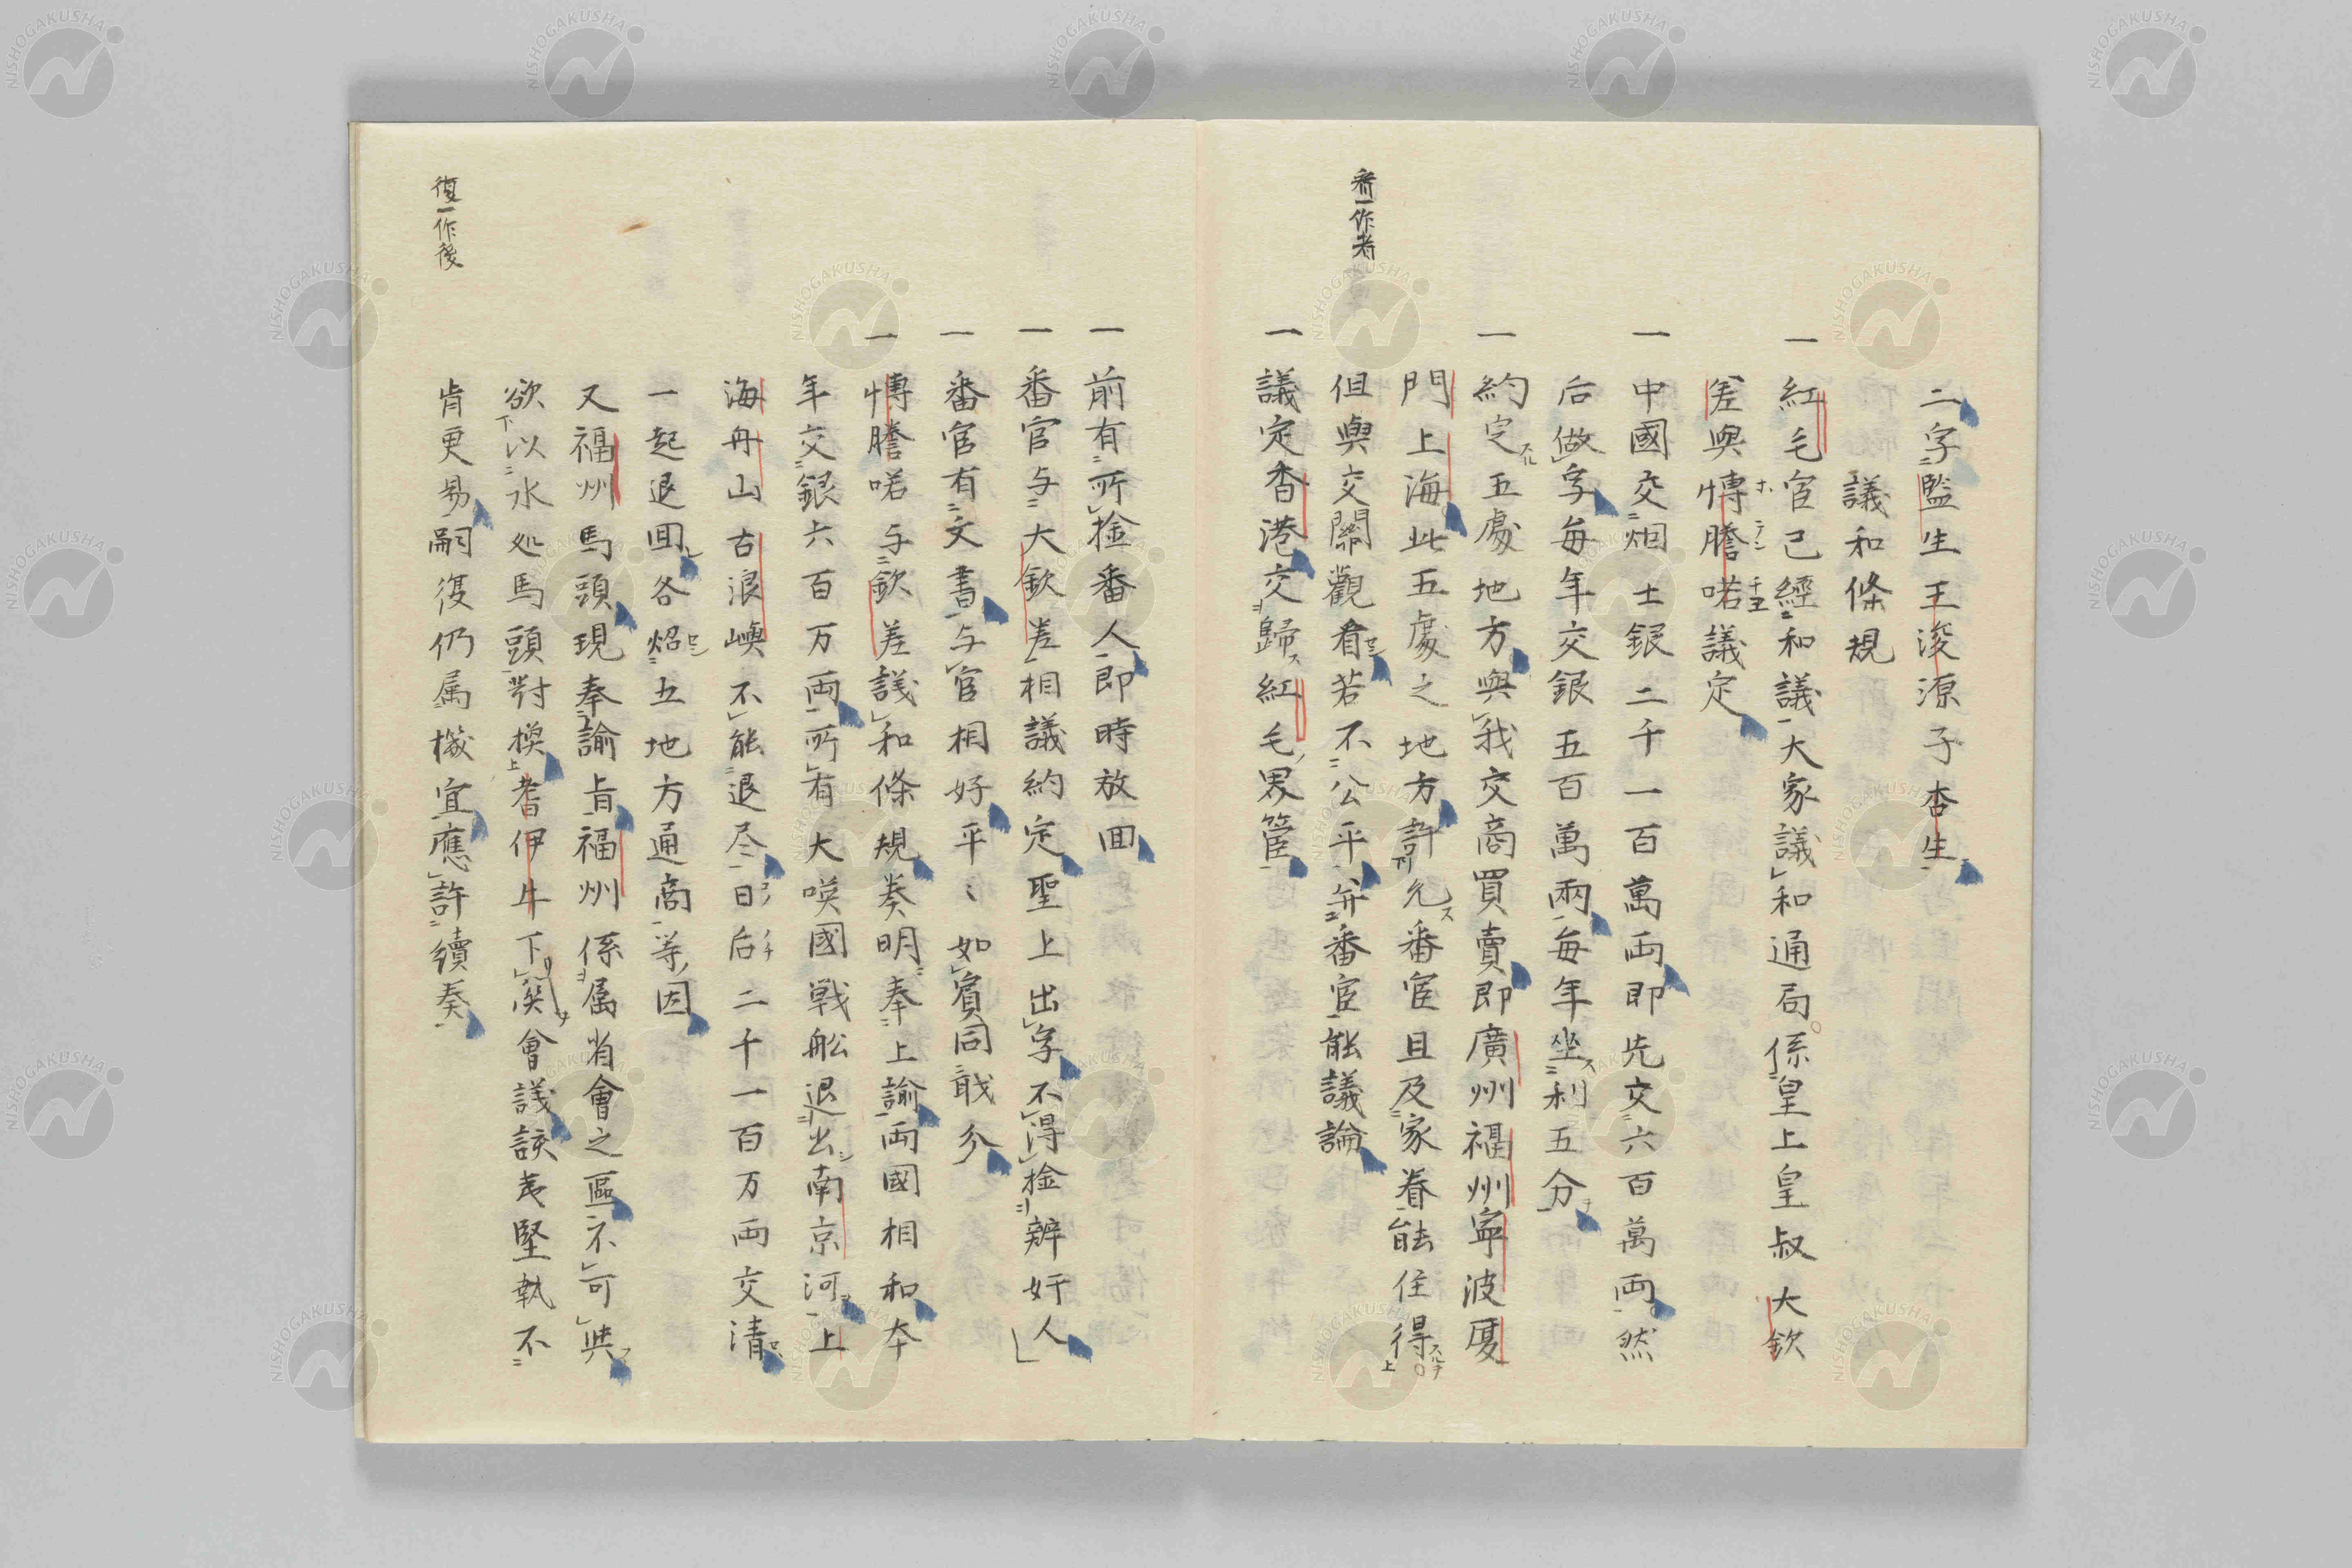 二字監生王浚源子杏生
議和條規
一 紅毛官已經和議大家議和通局係皇上皇叔大欽
差與愽謄喏議定
一 中國交烟土銀二千一百萬両即先交六百萬両然
后做字每年交銀五百萬兩每年坐利五分
一 約定五處地方與我交商買賣即廣州福州寧波厦
門上海此五處之地方許允番官且及家眷能住得
但與交關觀看若不公平弁番官能議論
一 議定香港交歸紅毛界管
番一作者
一 前有所捡番人即時放回
一 番官与大欽差相議約定聖上出字不得捡辨奸人
一 番官有文書与官相好平〻如賓同戢分
一 愽謄喏与欽差議和條規奏明奉上諭両國相和本
年交銀六百万両所有大唉國戦舩退出南京河上
海舟山古浪嶼不能退尽日后二千一百万両交清
一起退回各炤五地方通商等因
又福州馬頭現奉諭旨福州係属省會之區不可与
欲以水処馬頭對換耆伊牛下関會議該夷堅執不
肯更易嗣復仍属機宜應許續奏
復一作後
NISHOGAKUSHA